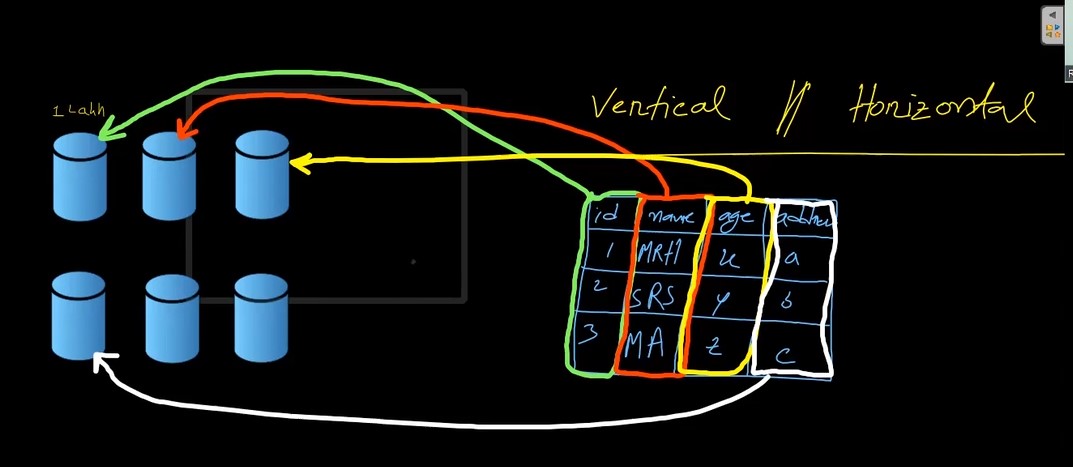 1 Lakh
Vertical // Horizontal
id name age address
1 MRH x a
2 SRS y b
3 MA z c